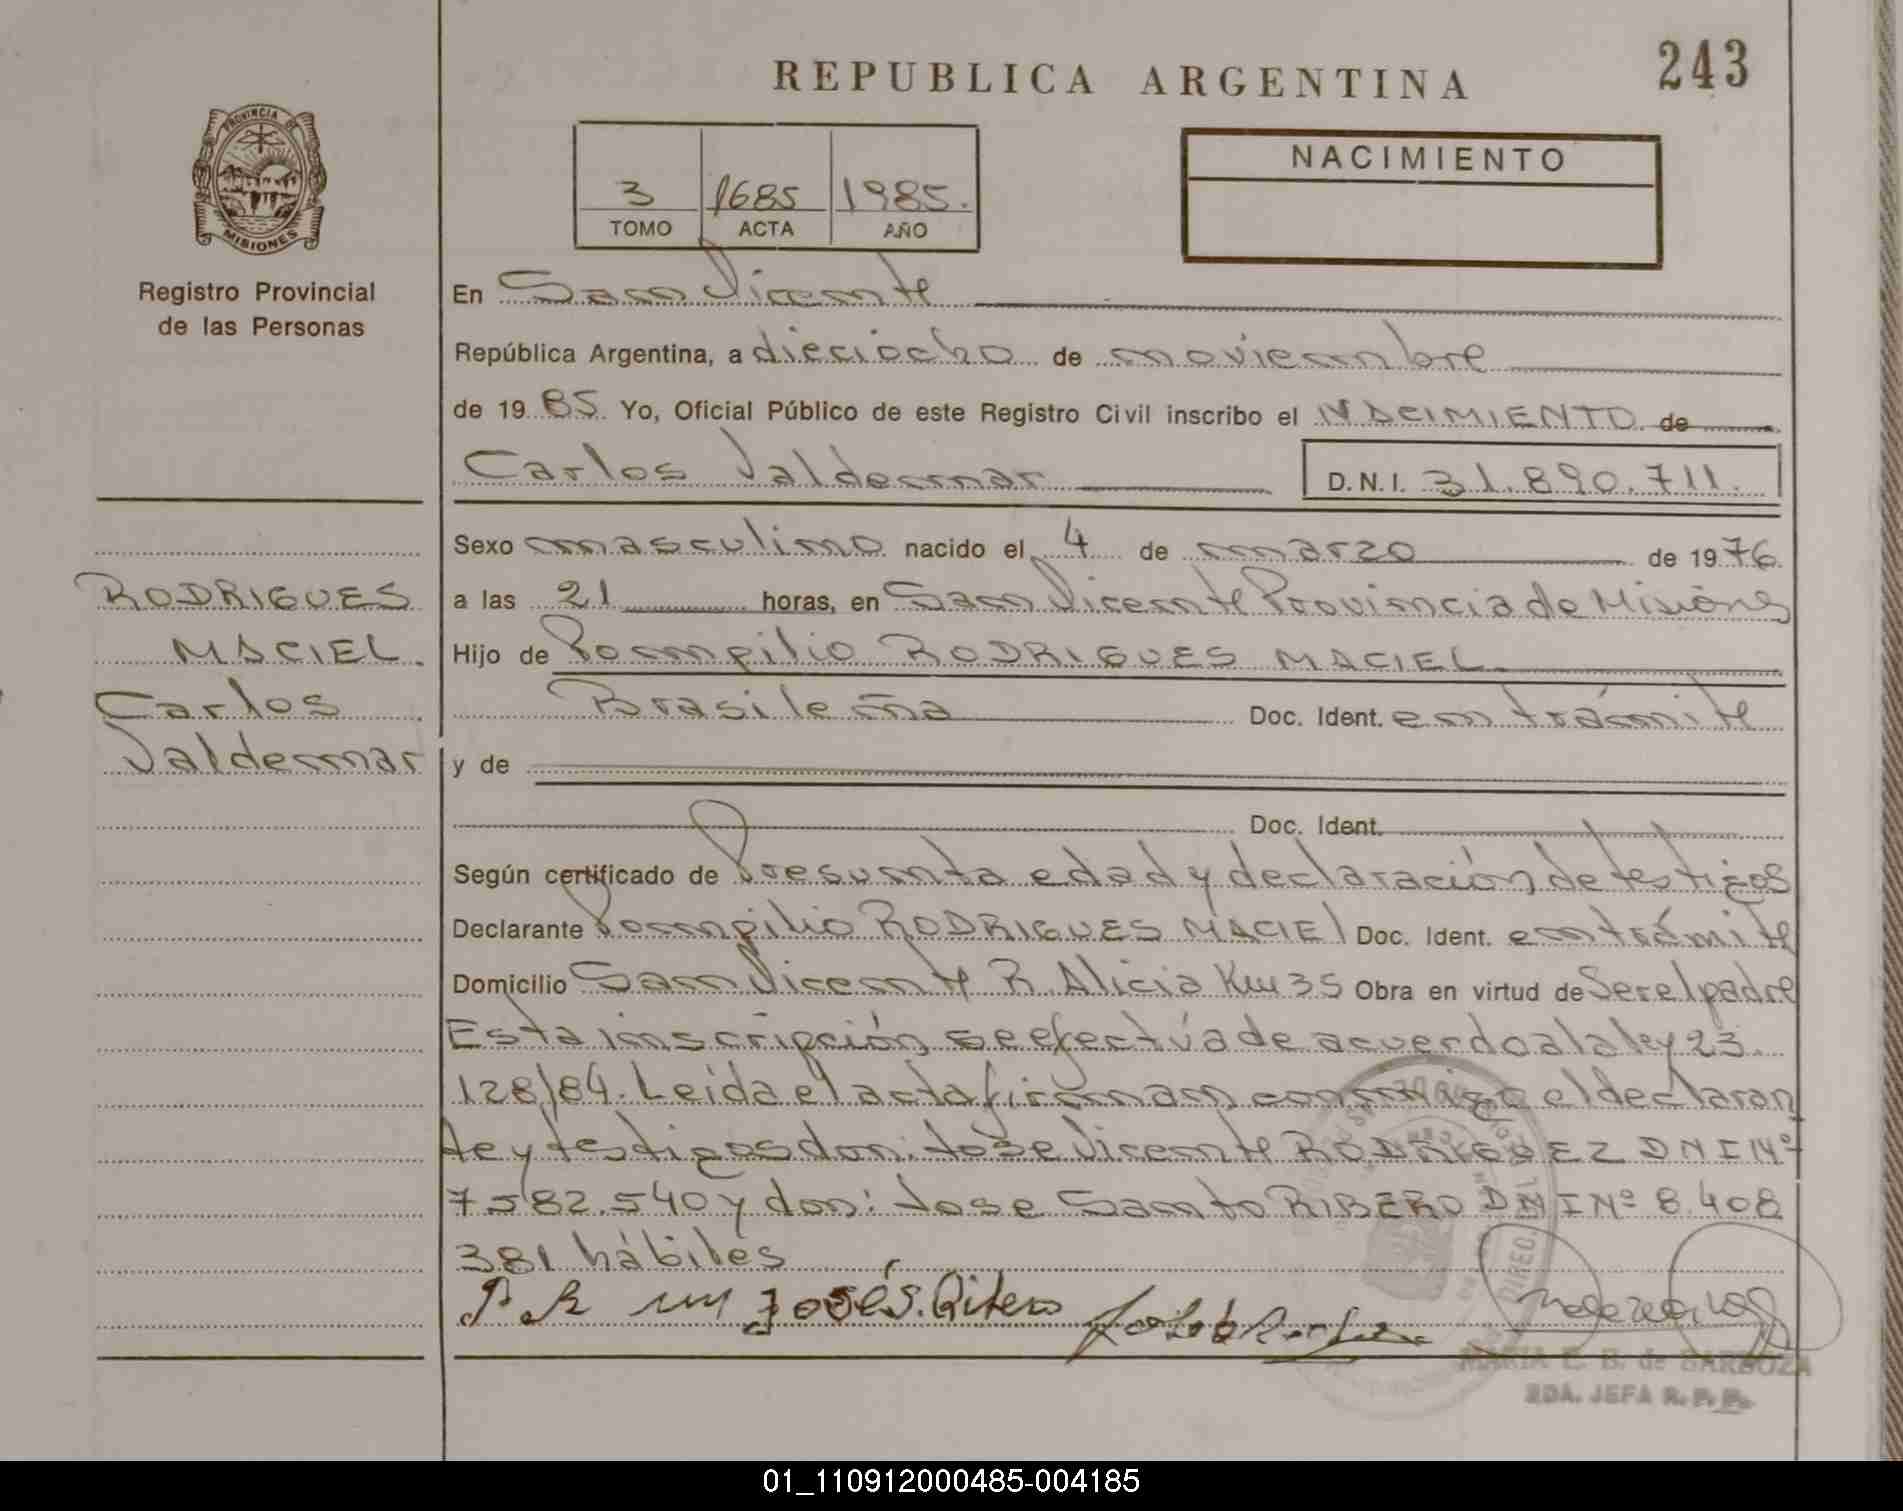 243
REPUBLICA ARGENTINA
PROVINCIA DE
MISIONES
Registro Provincial
de las Personas
3 1685 1985.
TOMO ACTA AÑO
NACIMIENTO
En San Vicente
República Argentina, a dieciocho de noviembre
de 19 85 Yo, Oficial Público de este Registro Civil inscribo el NACIMIENTO de
Carlos Valdemar D.N.I. 31.890.711.
Sexo masculino nacido el 4 de marzo de 1976
a las 21 horas, en San Vicente Provincia de Misiones
Hijo de Pompilio RODRIGUES MACIEL
Brasileña Doc. Ident. en trámite
y de
Doc. Ident.
Según certificado de Presunta edad y declaración de testigos
Declarante Pompilio RODRIGUES MACIEL Doc. Ident. en trámite
Domicilio San Vicente P. Alicia Km 35 Obra en virtud de Ser el padre
Esta inscripción se efectúa de acuerdo a la ley 23.
128/84. Leida el acta firman conmigo el declaran
te y testigos don: José Vicente RODRIGUEZ DNI Nº
7582.540 y don: Jose Santo RIBERO DNI Nº 8.408
381 hábiles
José S. Ribero
MARIA E. B. de BARBOZA
2DA. JEFA R. P. P.
RODRIGUES
MACIEL.
Carlos
Valdemar
01_110912000485-004185